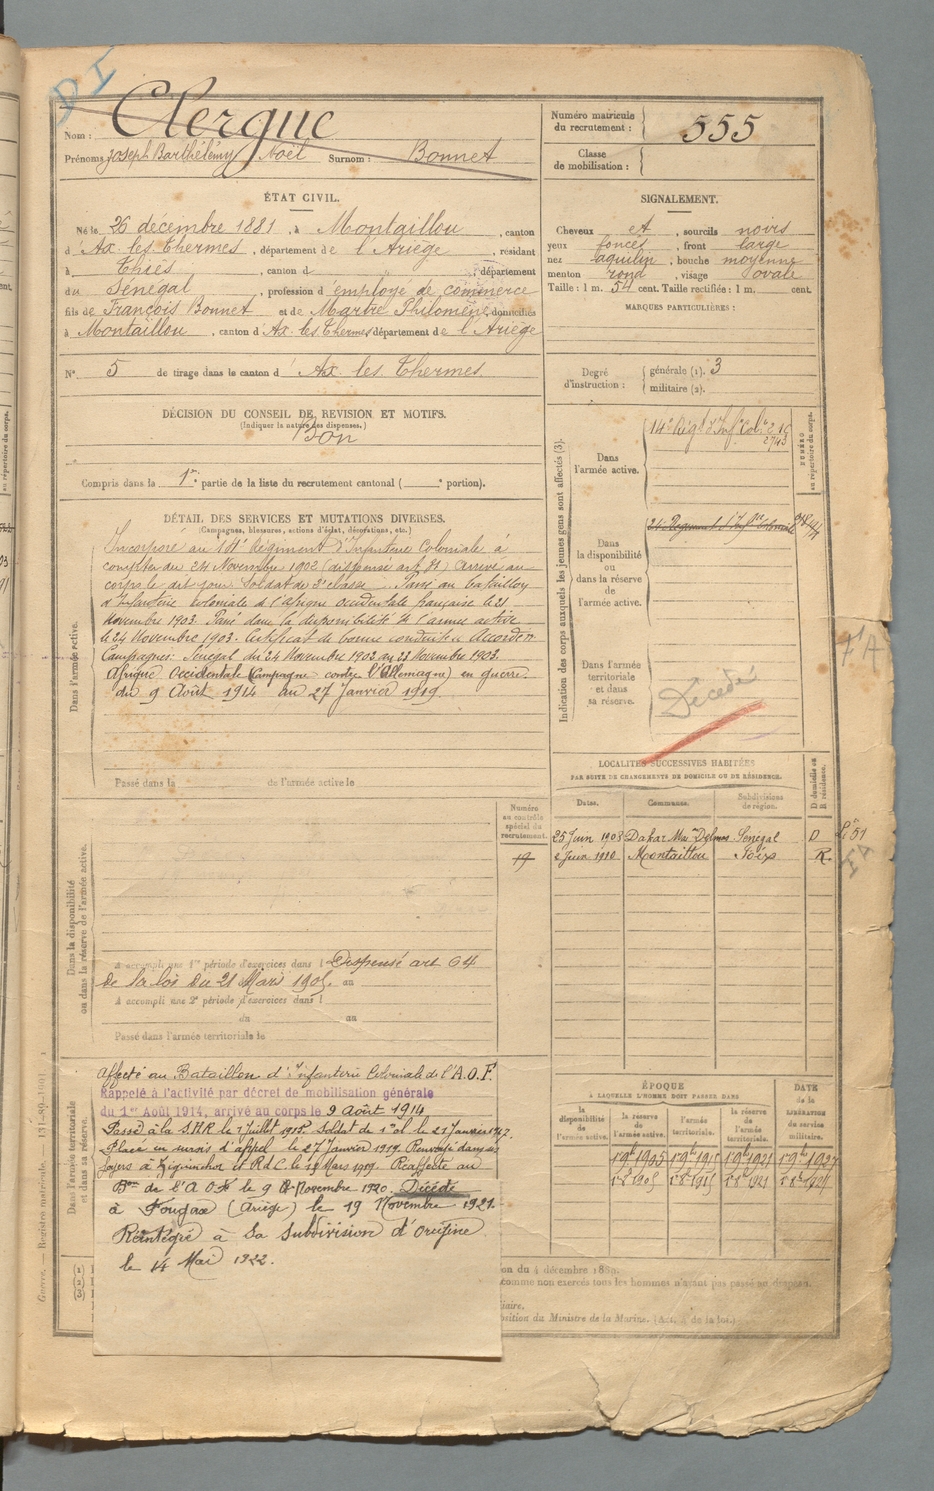 DI
Nom : Clergue
Prénoms Joseph Barthélemy Noël Surnom : Bonnet
Numéro matricule du recrutement : 555
Classe de mobilisation :
ÉTAT CIVIL.
Né le 26 décembre 1881, à Montaillou, canton
d'Ax-les-Thermes, département de l'Ariège, résidant
à Thiès, canton d " , département
du Sénégal, profession d'employé de commerce
fils de François Bonnet et de Marbre Philomène, domiciliés
à Montaillou, canton d'Ax les Thermes département de l'Ariège
N° 5 de tirage dans le canton d'Ax les Thermes
SIGNALEMENT.
Cheveux et, sourcils noirs
yeux foncés, front large
nez aquilin, bouche moyenne
menton rond, visage ovale
Taille : 1 m. 54 cent. Taille rectifiée : 1 m. cent.
MARQUES PARTICULIÈRES :
Degré d'instruction : générale (1). 3
militaire (2).
DÉCISION DU CONSEIL DE REVISION ET MOTIFS.
(Indiquer la nature des dispenses.)
Bon
Compris dans la 1re partie de la liste du recrutement cantonal ( portion).
DÉTAIL DES SERVICES ET MUTATIONS DIVERSES.
(Campagnes, blessures, actions d'éclat, décorations, etc.)
Dans l'armée active.
Incorporé au 14e Régiment d'Infanterie Coloniale à
compter du 24 Novembre 1902 (dispensé art ) arrivé au
corps le dit jour Soldat de 2e classe. Passé au bataillon
d'Infanterie coloniale de l'afrique occidentale française le 21
Novembre 1903. Passé dans la disponibilité de l'armée active
le 24 Novembre 1903. Certificat de bonne conduite accordé.
Campagnes: Sénégal du 24 Novembre 1902 au 23 Novembre 1903.
Afrique Occidentale (Campagne contre l'Allemagne) en guerre.
du 9 Août 1914 au 27 Janvier 1919.
Passé dans la de l'armée active le
Indication des corps auxquels les jeunes gens sont affectés (3).
NUMÉRO au répertoire du corps.
Dans l'armée active.
14e Régt d'Infie Colle
Dans la disponibilité ou dans la réserve de l'armée active.
24 Régiment d'Infie Coloniale
Dans l'armée territoriale et dans sa réserve.
Décédé
LOCALITÉS SUCCESSIVES HABITÉES
PAR SUITE DE CHANGEMENTS DE DOMICILE OU DE RÉSIDENCE.
Dates. Communes. Subdivisions de région. D domicile ou R résidence.
25 Juin 1908 Dakar Mon Delmas Sénégal D
2 Juin 1910 Montaillou Foix R.
Numéro au contrôle spécial du recrutement.
Dans la disponibilité ou dans la réserve de l'armée active.
A accompli une 1re période d'exercices dans l Dispensé art 64
de la loi du 21 Mars 1905. au
A accompli une 2e période d'exercices dans l
du au
Passé dans l'armée territoriale le
Dans l'armée territoriale et dans sa réserve.
Affecté au Bataillon d'Infanterie Coloniale de l'A.O.F.
Rappelé à l'activité par décret de mobilisation générale
du 1er Août 1914, arrivé au corps le 9 Août 1914
Passé à la S.H.R. le 1 Juillet 1915. Soldat de 1e cl le 21 Janvier 1917.
Placé en sursis d'appel le 27 Janvier 1919. Renvoyé dans ses
foyers à Ziguinchor et R.d.C. le Mars 1919. Réaffecté au
Bon de l'A O F le 9 Novembre 1920. Décédé
à Fougax (Ariège) le 19 Novembre 1921.
Réintégré à sa subdivision d'origine
le 14 Mai 1922.
ÉPOQUE
À LAQUELLE L'HOMME DOIT PASSER DANS
la disponibilité de l'armée active. la réserve de l'armée active. l'armée territoriale. la réserve de l'armée territoriale.
DATE de la LIBÉRATION du service militaire.
1 9bre 1905 1 9bre 1915 1 9bre 1921 1 9bre 1927
on du 4 décembre 1889.
comme non exercés tous les hommes n'ayant pas passé au drapeau.
iaire.
osition du Ministre de la Marine. (Art. de la loi.)
Guerre. — Registre matricule.